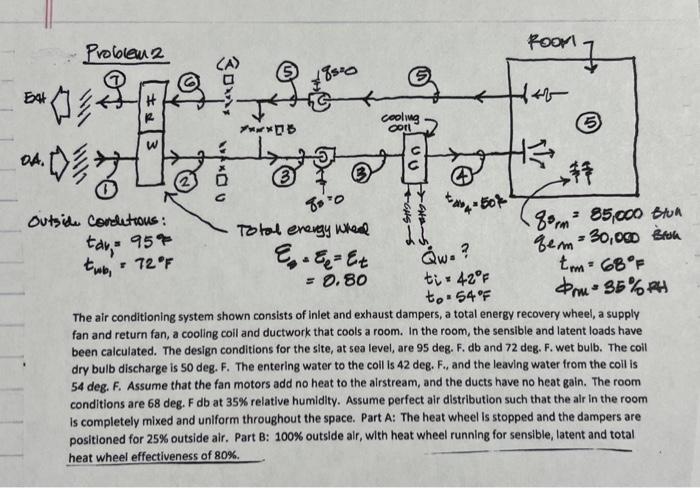 Problem 2
ROOM
(A)
7
6
5
qs=0
5
EXH
H
R
W
cooling
coil
5
XXXX B
O.A.
C
C
1
2
C
3
qs=0
3
4
tdb4 = 50°F
CHS
CHR
Outside Conditions:
tdb1 = 95°F
twb1 = 72°F
Total energy wheel
Es = El = Et
= 0.80
Qw = ?
ti = 42°F
to = 54°F
qsrm = 85,000 Btuh
qlrm = 30,000 Btuh
trm = 68°F
ϕrm = 35% RH
The air conditioning system shown consists of inlet and exhaust dampers, a total energy recovery wheel, a supply
fan and return fan, a cooling coil and ductwork that cools a room. In the room, the sensible and latent loads have
been calculated. The design conditions for the site, at sea level, are 95 deg. F. db and 72 deg. F. wet bulb. The coil
dry bulb discharge is 50 deg. F. The entering water to the coil is 42 deg. F., and the leaving water from the coil is
54 deg. F. Assume that the fan motors add no heat to the airstream, and the ducts have no heat gain. The room
conditions are 68 deg. F db at 35% relative humidity. Assume perfect air distribution such that the air in the room
is completely mixed and uniform throughout the space. Part A: The heat wheel is stopped and the dampers are
positioned for 25% outside air. Part B: 100% outside air, with heat wheel running for sensible, latent and total
heat wheel effectiveness of 80%.